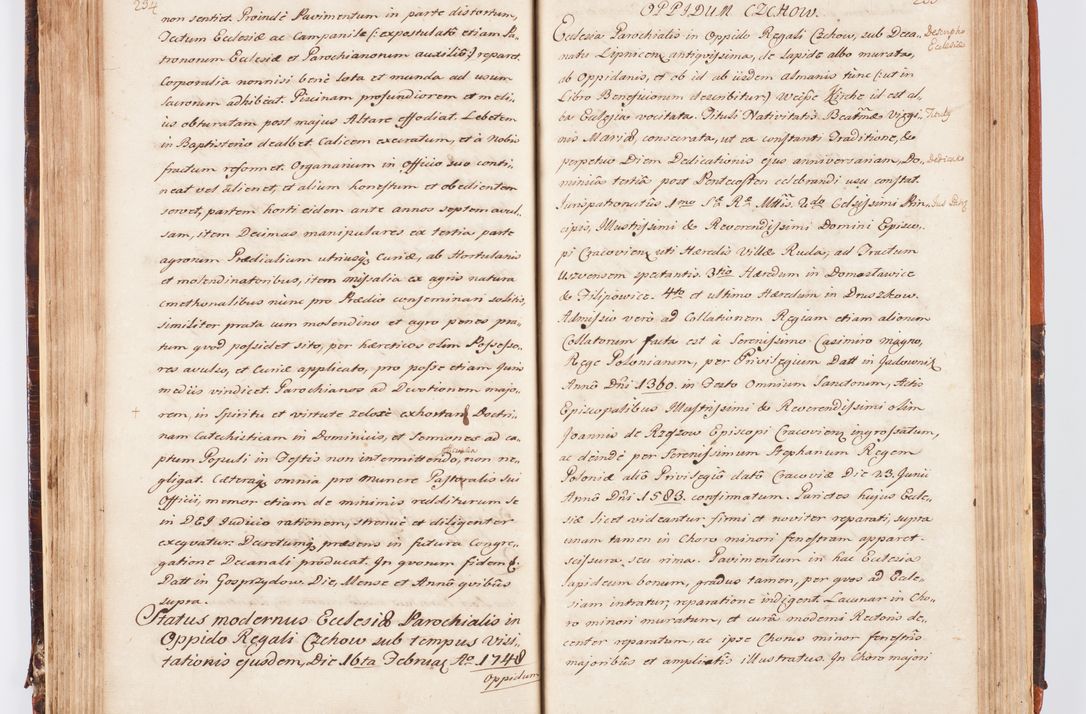 234
non sentiet. Proindè Pavimentum in parte distortum,
Tectum Ecclesiæ ac Campanile (: expostulatô etiam Pa-
tronorum Ecclesiæ et Parochianorum auxiliô:) reparet.
Corporalia nonnisi benè lota et munda ad usum
sacrorum adhibeat. Piscinam profundiorem et meli-
us obturatam post majus Altare effodiat. Lebetem
in Baptisterio dealbet. Calicem execratum, et à Nobis
fractum reformet. Organarium in officio suo conti-
neat vel alienet, et alium honestum et obedientem
servet, partem horti eidem ante annos septem avul-
sam, item Decimas manipulares ex tertia parte
agrorum Prædialium utriusq; Curiæ, ab Hortulanis
et molendinatoribus, item missalia ex agris natura
cmethonalibus nùnc pro Prædio conseminari solitis,
similiter prata cum molendino et agro penes pra-
tum quod possidet sito, per hæreticos olim Possesso-
res avulso, et Curiæ applicato, pro posse etiam Juris
mediis vindicet. Parochianos ad Devotionem majo-
rem, in Spiritu et virtute zelosè exhortans Doctri-
nam Catechisticam in Dominicis, et Sermones ad ca-
ptum Populi in Festis non intermittendo, non ne-
gligat. Cæteraq; omnia pro munere Pastoralis sui
Officii, memor etiam de minimis redditurum se
in DEI Judicio rationem, strenuè et diligenter
exequatur. Decretumq; præsens in futura Congre-
gatione Decanali producat. In quorum fidem &.
Datt in Gosprzydow. Die, Mense et Annô quibus
supra.
Status modernus Ecclesiæ Parochialis in
Oppido Regali Czchow sub tempus Visi-
tationis ejusdem, Die 16ta Februar. Aô 1748
Oppidum
OPPIDUM CZCHOW.
Ecclesia Parochialis in Oppido Regali Czchow, sub Deca-
natu Lipnicen, antiquissima, de Lapide albo murata,
ab Oppidanis, et ob id ab iisdem Almanis tunc (: ut in
Libro Beneficiorum describitur:) Weisse Kirche id est al-
ba Ecclesia vocitata. Tituli Nativitatis Beatmæ Virgi-
nis Mariæ, consecrata, ut ex constanti Traditione, &
perpetuo Diem Dedicationis ejus anniversariam, Do-
minicâ tertiâ post Pentecosten celebrandi usu constat.
Jurispatronatûs 1mo Sæ Ræ Mttis. 2do Celsissimi Prin-
cipis, Illustrissimi & Reverendissimi Domini Episco-
pi Cracovien, uti Hæredis Villæ Ruda, ad Tractum
Uszvensem spectantis. 3tio Hæredum in Domosławice
& Filipowice. 4to et ultimo Hæredum in Druszkow.
Admissio verò ad Collationem Regiam etiam aliorum
Collatorum facta est à Serenissimo Casimiro magno,
Rege Polonianum, per Privilegium Datt in Jadowniki
Annô Dni 1360. in Festo Omnium Sanctorum, Actis
Episcopalibus Illustrissimi & Reverendissimi olim
Joannis de Rzeszow Episcopi Cracovien, ingrossatum,
ac deindè per Serenissimum Stephanum Regem
Poloniæ aliô Privilegiô datô Cracoviæ Die 23. Junii
Annô Dni 1583. confirmatum. Parietes hujus Eccle-
siæ licet videantur firmi et noviter reparati, supra
unam tamen in Choro minori fenestram apparet
scissura seu rima. Pavimentum in hac Ecclesia
lapideum bonum, gradus tamen, per quos ad Eccle-
siam intratur, reparatione indigent. Lacunar in Cho-
ro minori muratum, et curâ moderni Rectoris de-
center reparatum, ac ipse Chorus minor fenestris
majoribus et ampliatis illustratus. In Choro majori
Descriptio
Ecclesiæ
Tituli
Dedicatio
Jus Patr.